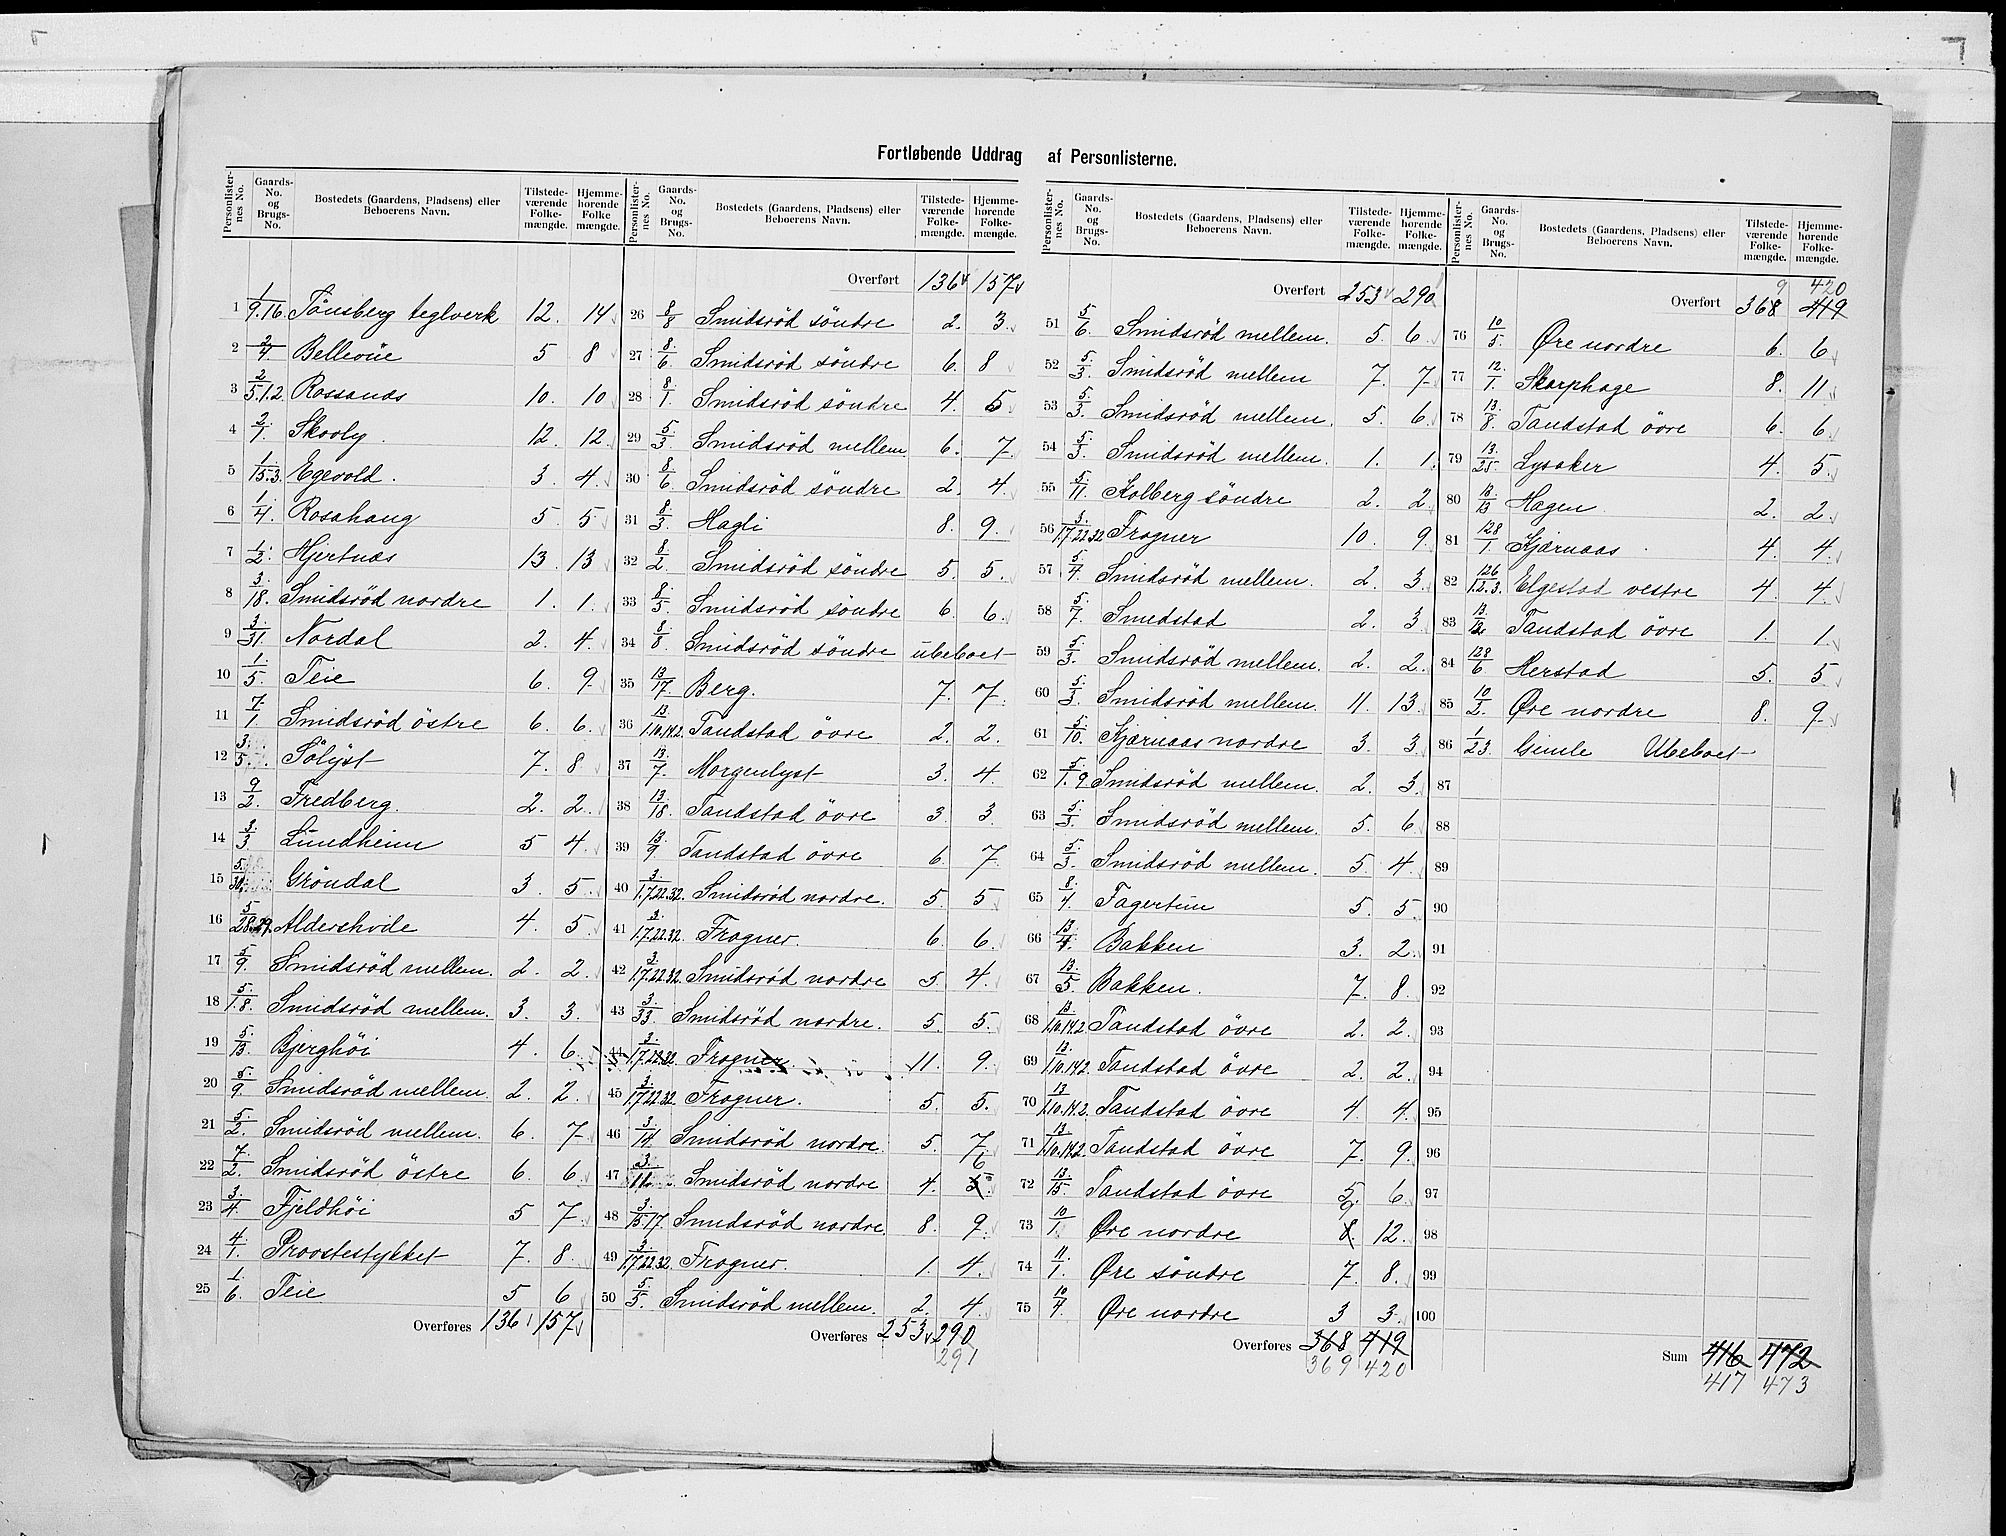 Fortløbende Uddrag af Personlisterne.
Personlister-nes No. Gaards-No. og Brugs-No. Bostedets (Gaardens, Pladsens) eller Beboerens Navn. Tilstede-værende Folke-mængde. Hjemme-hørende Folke mængde.
1 1/9.16. Tönsberg teglverk 12. 14
2 2/4 Bellevüe 5 8
3 2/5.1.2. Rossanas 10. 10
4 2/1. Skooly. 12. 12.
5 1/15.3. Egevold. 3. 4.
6 1/4. Rosahaug 5. 5
7 1/2. Hjertnæs 13. 13
8 3/18. Smidsröd nordre 1. 1.
9 3/31. Nordal 2. 4.
10 1/5. Teie 6. 9
11 7/1. Smidsröd östre 6. 6.
12 3/5. Sölyst 7. 8
13 9/2. Fredberg. 2. 2.
14 3/3. Lündheim 5 4.
15 5/30. Gröndal 3. 5.
16 5/28.29. Aldershvile 4. 5.
17 5/9. Smidsröd mellem. 2. 2.
18 5/1.8. Smidsröd mellem. 3. 3.
19 5/13. Bjerghöi 4. 6.
20 5/9. Smidsröd mellem. 2. 2.
21 5/2. Smidsröd mellem. 6. 7
22 7/2. Smidsröd östre 6. 6.
23 3/4. Fjeldhöi 5 7
24 4/1. Proostestykket 7. 8.
25 1/6. Teie 5 6
Overføres 136 157
Personlister-nes No. Gaards-No. og Brugs-No. Bostedets (Gaardens, Pladsens) eller Beboerens Navn. Tilstede-værende Folke-mængde. Hjemme-hørende Folke-mængde.
Overført 136 157
26 8/8 Smidsröd söndre 2. 3.
27 8/6. Smidsröd söndre 6. 8
28 8/1 Smidsröd söndre 4. 5
29 5/3. Smidsröd mellem. 6. 7.
30 8/6. Smidsröd söndre 2. 4.
31 8/3. Hagli 8. 9.
32 8/2. Smidsröd söndre 5. 5.
33 8/5. Smidsröd söndre 6. 6.
34 8/8. Smidsröd söndre übeboet
35 13/17 Berg. 7. 7.
36 13/1.10.14.2. Tandstad övre 2. 2.
37 13/7. Morgenlyst 3. 4.
38 13/18. Tandstad övre 3. 3.
39 13/9 Tandstad övre 6. 7
40 3/1.7.22.32. Smidsröd nordre. 5. 5
41 3/1.7.22.32 Frogner. 6. 6.
42 3/1.7.22.32 Smidsröd nordre 5. 4.
43 3/33. Smidsröd nordre. 5. 5.
44 3/1.7.22.32. Frogner 11. 9.
45 3/1.7.22.32 Frogner. 5. 5.
46 3/14. Smidsröd nordre. 5. 7
47 3/11. Smidsröd nordre 4. 6 5.
48 3/15.17. Smidsröd nordre. 8. 9.
49 3/1.7.22.32 Frogner. 1. 4.
50 5/5. Smidsröd mellem. 2. 4.
Overføres 253 290
291
Personlister-nes No. Gaards-No. og Brugs-No. Bostedets (Gaardens, Pladsens) eller Beboerens Navn. Tilstede-værende Folke-mængde. Hjemme-hørende Folke-mængde.
Overført 253 290
51 5/6. Smidsröd mellem. 5. 6.
52 5/3. Smidsröd mellem 7. 7
53 5/3. Smidsröd mellem. 5. 6.
54 5/3. Smidsröd mellem. 1. 1.
55 5/11. Kolberg söndre 2. 2.
56 3/1.7.22.32 Frogner 10. 9.
57 5/4. Smidsröd mellem. 2. 3.
58 5/7. Smedstad 2. 3
59 5/3. Smidsröd mellem. 2. 2.
60 5/3 Smidsröd mellem. 11. 13.
61 5/10. Kjærnaas nordre 3. 3
62 5/1.9. Smidsröd mellem. 2. 3.
63 5/3. Smidsröd mellem. 5. 6
64 5/3. Smidsröd mellem. 5. 4.
65 8/4. Fagertün 5. 5.
66 13/4. Bakken 3. 2.
67 13/5. Bakken. 7. 8.
68 13/1.10.14.2 Tandstad övre 2. 2.
69 13/1.10.14.2. Tandstad övre 2. 2.
70 13/1.10.14.2. Tandstad övre 4. 4.
71 13/1.10.14.2. Tandstad övre 7. 9.
72 13/15. Tandstad övre 5 6.
73 10/1. Øre nordre 9 8. 12.
74 11/1. Øre söndre 7. 8.
75 10/4. Øre nordre 3 3.
Overføres 368 419
369 420
Personlister-nes No. Gaards-No. og Brugs-No. Bostedets (Gaardens, Pladsens) eller Beboerens Navn. Tilstede-værende Folke-mængde. Hjemme-hørende Folke-mængde.
9 420
Overført 368 419
76 10/5. Øre nordre 6. 6
77 12/1. Skarphage 8. 11
78 13/8. Tandstad övre 6. 6.
79 13/25. Lysaker 4. 5.
80 13/13 Hagen 2. 2.
81 128/1. Kjærnaas 4. 4.
82 126/1.2.3. Elgestad vestre 4 4.
83 13/12 Tandstad övre 1. 1.
84 128/6 Herstad 5. 5
85 10/2. Øre nordre 8. 9.
86 1/23. Gimle Ubeboet
87
88
89
90
91
92
93
94
95
96
97
98
99
100
Sum 416 472
417 473